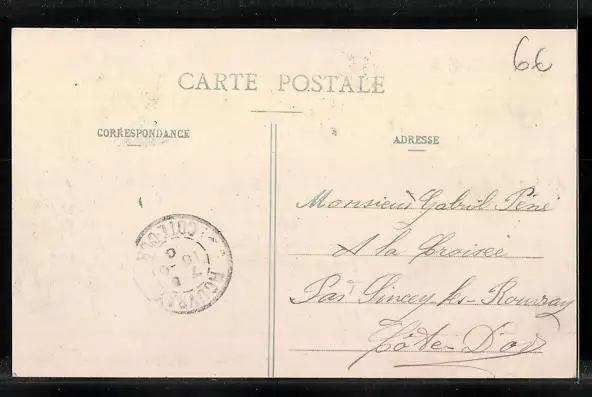 6€
CARTE POSTALE
CORRESPONDANCE
ADRESSE
Monsieur Gabriel Péné
A la Croisée
Par Sincey-les-Rouvray
Côte-D'or
ROUVRAY
COTE-D'OR
16
7